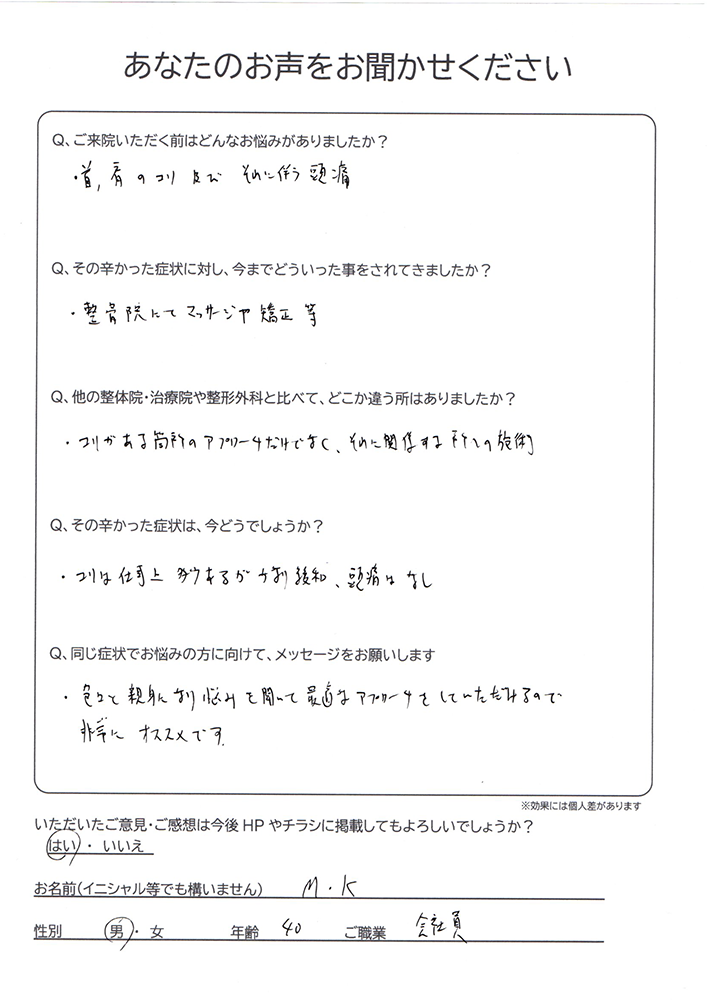 あなたのお声をお聞かせください
Q、ご来院いただく前はどんなお悩みがありましたか？
・首,肩のコリ及び それに伴う頭痛
Q、その辛かった症状に対し、今までどういった事をされてきましたか？
・整骨院にてマッサージや矯正等
Q、他の整体院・治療院や整形外科と比べて、どこか違う所はありましたか？
・コリがある箇所のアプローチだけでなく、それに関係する所への施術
Q、その辛かった症状は、今どうでしょうか？
・コリは仕事上 多少あるがかなり緩和、頭痛はなし
Q、同じ症状でお悩みの方に向けて、メッセージをお願いします
・色々と親身になり悩みを聞いて最適なアプローチをしていただけるので
非常にオススメです
※効果には個人差があります
いただいたご意見・ご感想は今後HPやチラシに掲載してもよろしいでしょうか？
はい・いいえ
お名前(イニシャル等でも構いません) M・K
性別 男・女 年齢 40 ご職業 会社員